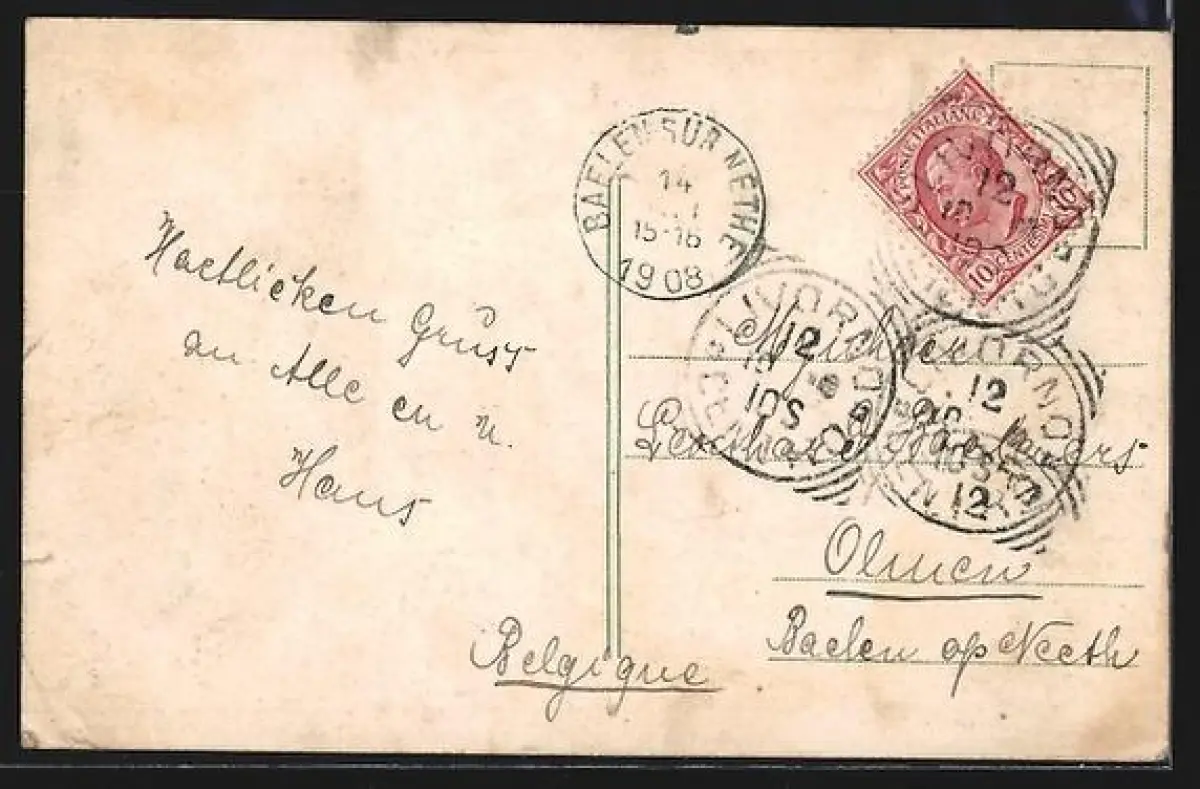 Haetlicken Gruss
an Alle en u.
Haus
BAELEN-SUR-NETHE
14
15-16
1908
POSTE ITALIANE
10 CENTESIMI
12
LIVORNO
12
10S
LIVORNO
12
10S
12
Olmen
Baelen op Neeth
Belgique